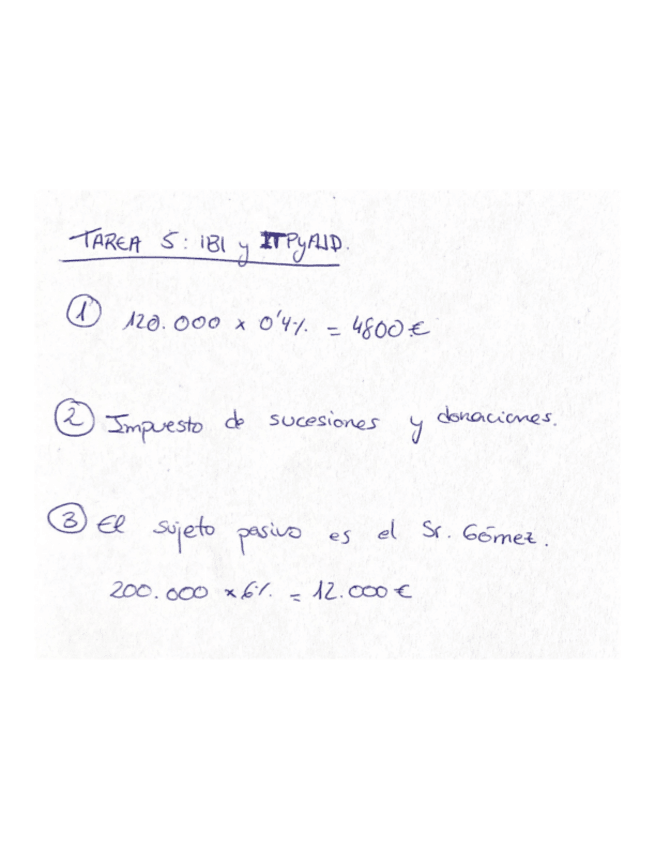 TAREA 5: IBI y ITPyAJD.
1 120.000 x 0'4% = 4800 €
2 Impuesto de sucesiones y donaciones.
3 El sujeto pasivo es el Sr. Gómez.
200.000 x 6% = 12.000 €